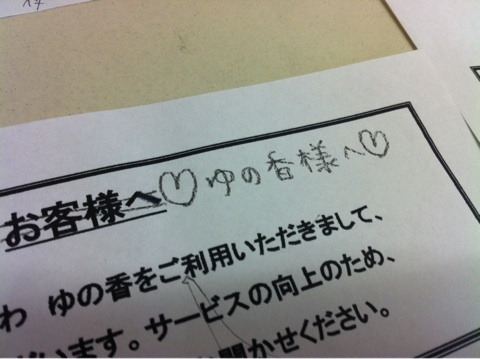 お客様へ♡ゆの香様へ♡
わ ゆの香をご利用いただきまして、
ざいます。サービスの向上のため、
聞かせください。